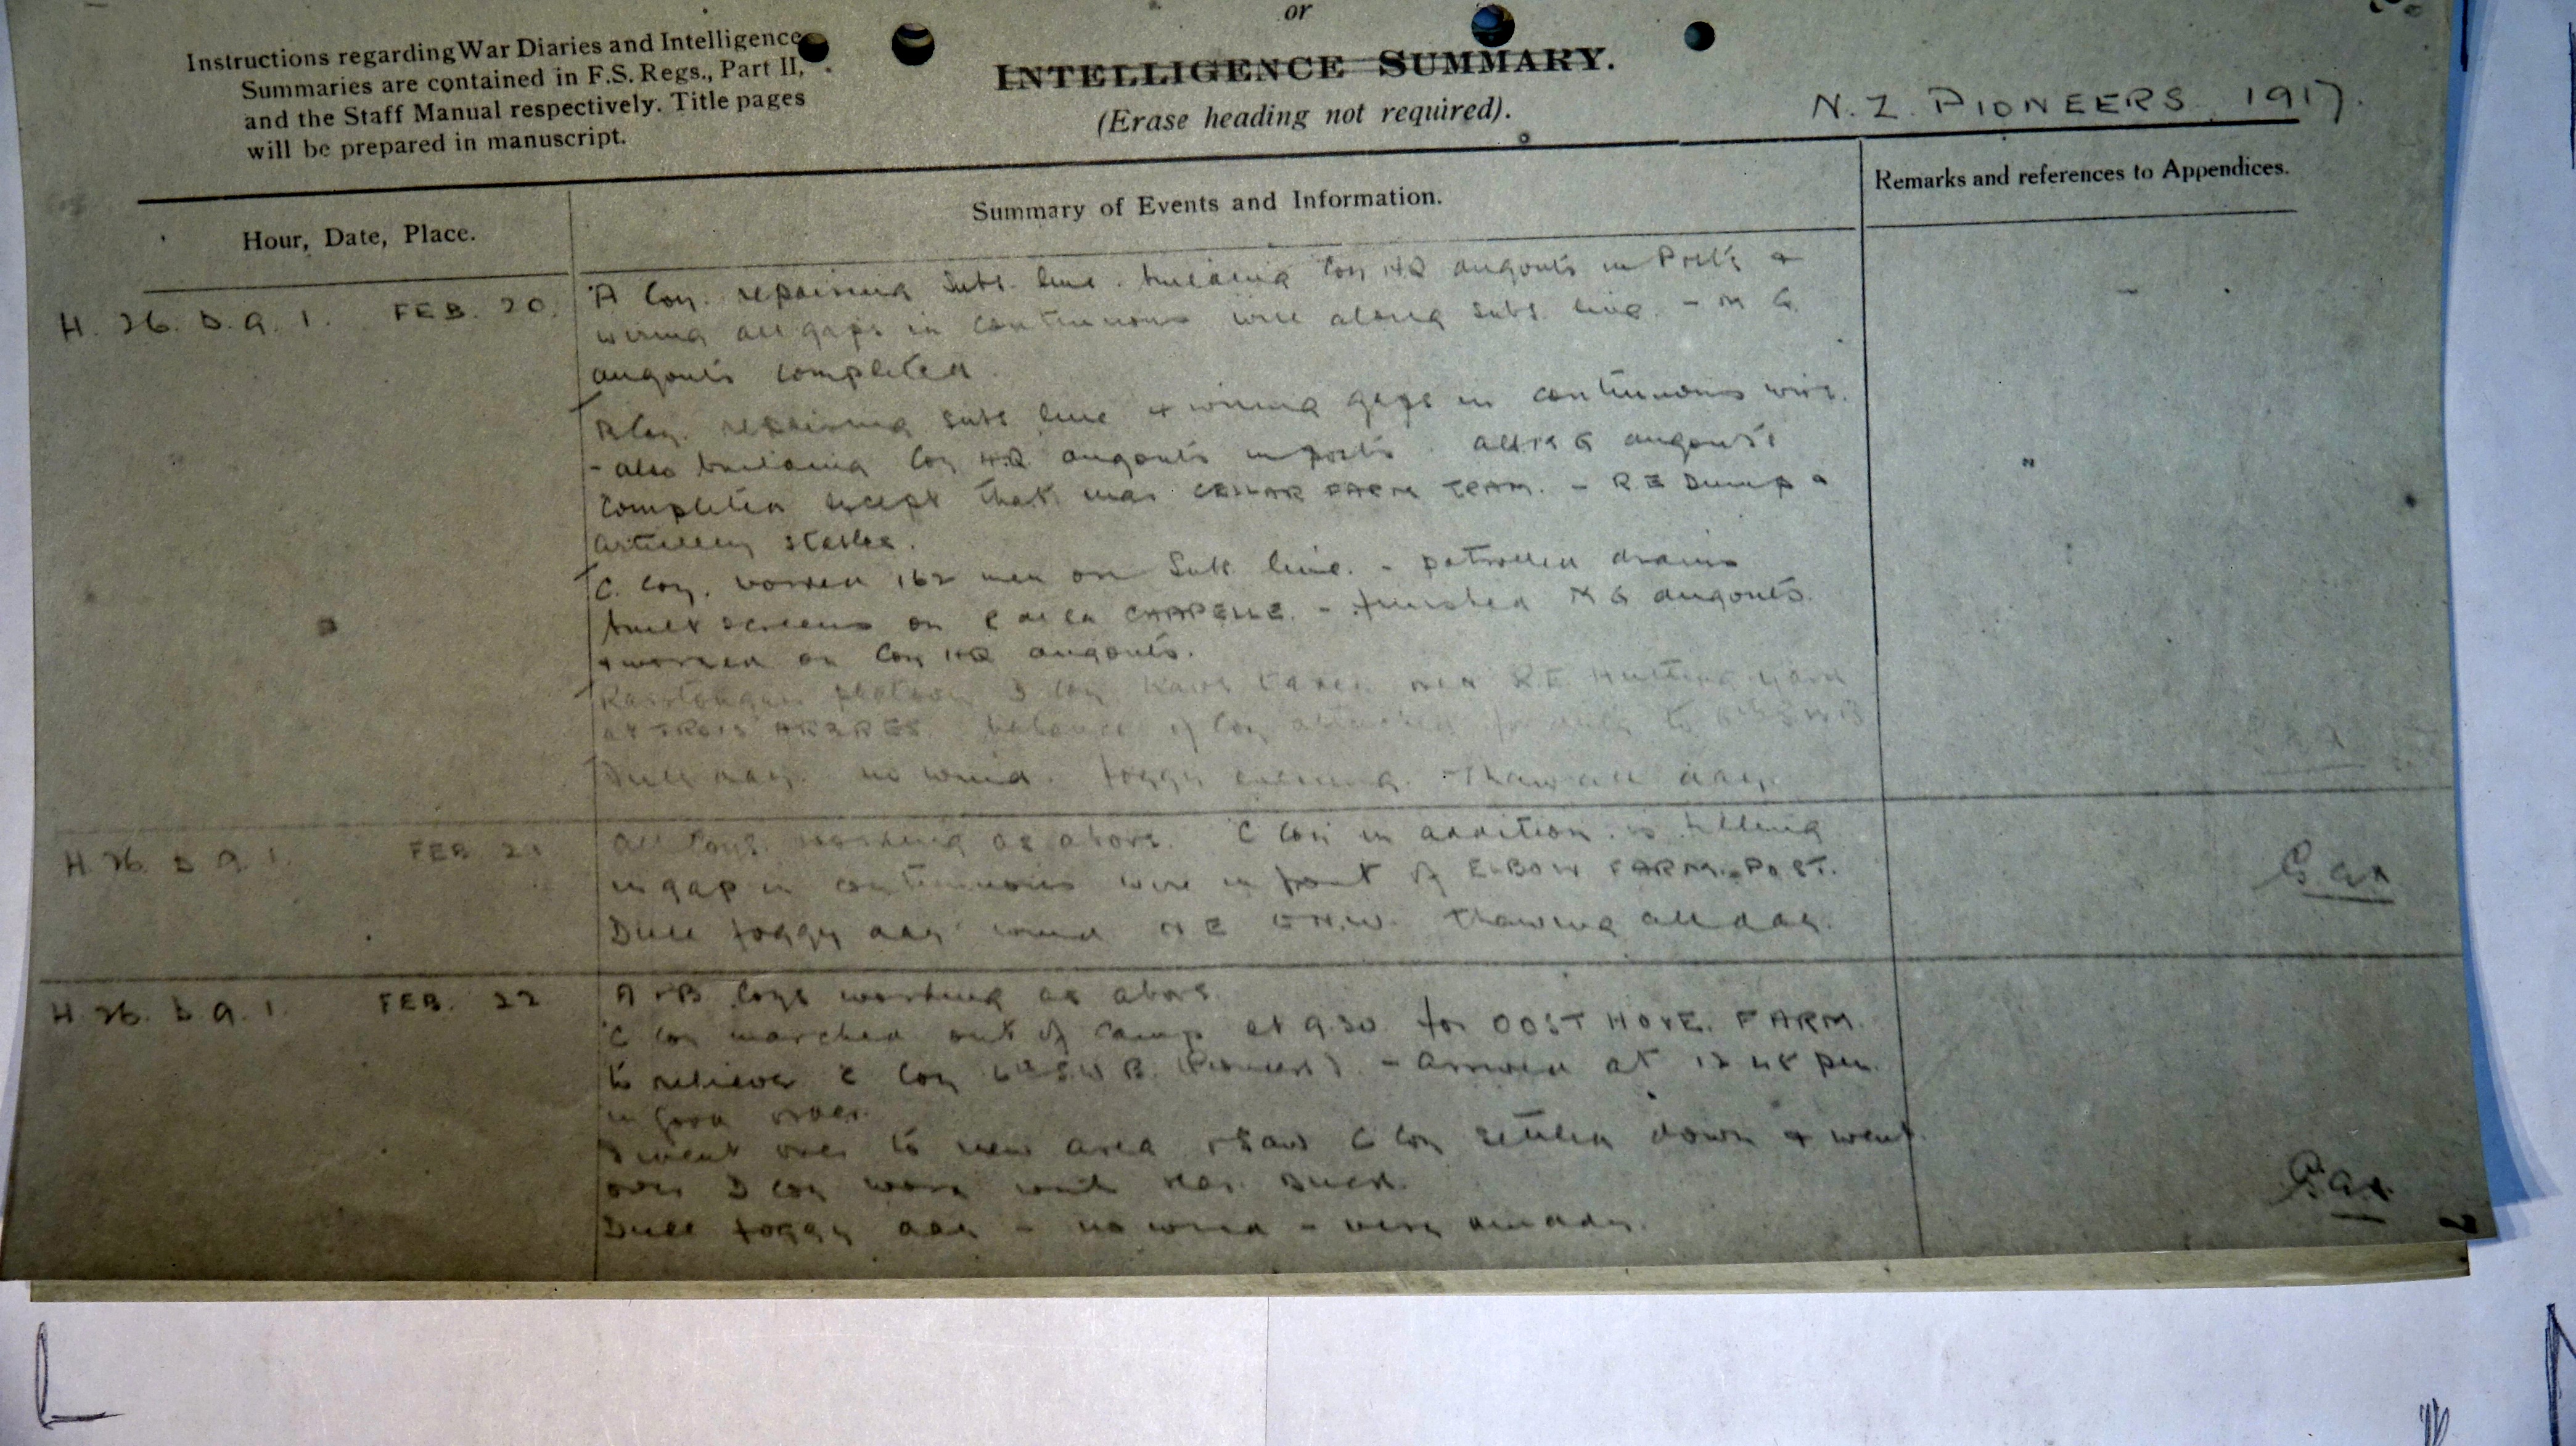 or
INTELLIGENCE SUMMARY.
(Erase heading not required).
Instructions regarding War Diaries and Intelligence
Summaries are contained in F.S. Regs., Part II,
and the Staff Manual respectively. Title pages
will be prepared in manuscript.
N. Z. PIONEERS 1917.
Hour, Date, Place.
Summary of Events and Information.
Remarks and references to Appendices.
H. 26. D. 9. 1. FEB. 20.
A Coy. repairing Subs. line. building Coy HQ dugouts in Posts &
wiring all gaps in continuous wire along subs. line. - M G
dugouts completed.
B Coy. repairing subs line & wiring gaps in continuous wire.
- also building Coy H.Q. dugouts in posts. All M G dugouts
completed except that near CELLAR FARM TRAM. - R E Dump &
artillery stables.
C. Coy. worked 162 men on Sub line. - patrolled drains
built screens on CHAPELLE. - finished M G dugouts.
& worked on Coy HQ dugouts.
Rarotongan platoon D Coy have taken over R.E. Hutting yard
at TROIS ARBRES. balance of Coy attached to 6th S W B
Dull day. no wind. foggy evening. Thaw all day.
H. 26. D 9. 1. FEB 21
All Coys. working as above. C Coy in addition is filling
in gap in continuous wire in front of ELBOW FARM POST.
Dull foggy day wind N E & N.W. thawing all day.
H. 26. D 9. 1. FEB. 22
A & B Coys working as above.
C Coy marched out of camp at 9.30 for OOSTHOVE FARM.
to relieve C Coy 6th S.W B. (Pioneers). - arrived at 12 45 pm
in good order.
I went over to new area & saw C Coy settled down & went
over D Coy work with Maj. Buck.
Dull foggy day - no wind - very muddy.